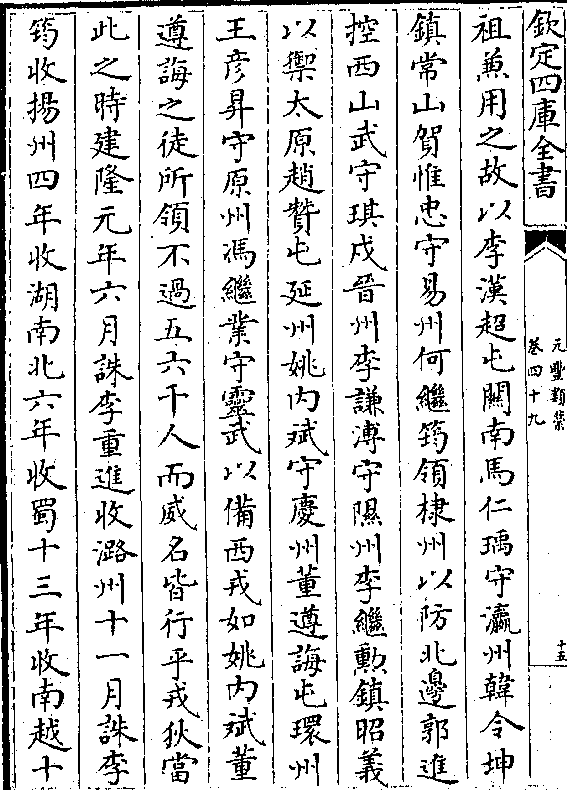 欽定四庫全書
元豐類槀
卷四十九
十五
祖兼用之故以李漢超屯關南馬仁瑀守瀛州韓令坤
鎮常山賀惟忠守易州何繼筠領棣州以防北邊郭進
控西山武守琪戍晉州李謙溥守隰州李繼勲鎮昭義
以禦太原趙贊屯延州姚内斌守慶州董遵誨屯環州
王彦昇守原州馮繼業守靈武以備西戎如姚内斌董
遵誨之徒所領不過五六千人而威名皆行乎戎狄當
此之時建隆元年六月誅李重進收潞州十一月誅李
筠收揚州四年收湖南北六年收蜀十三年收南越十